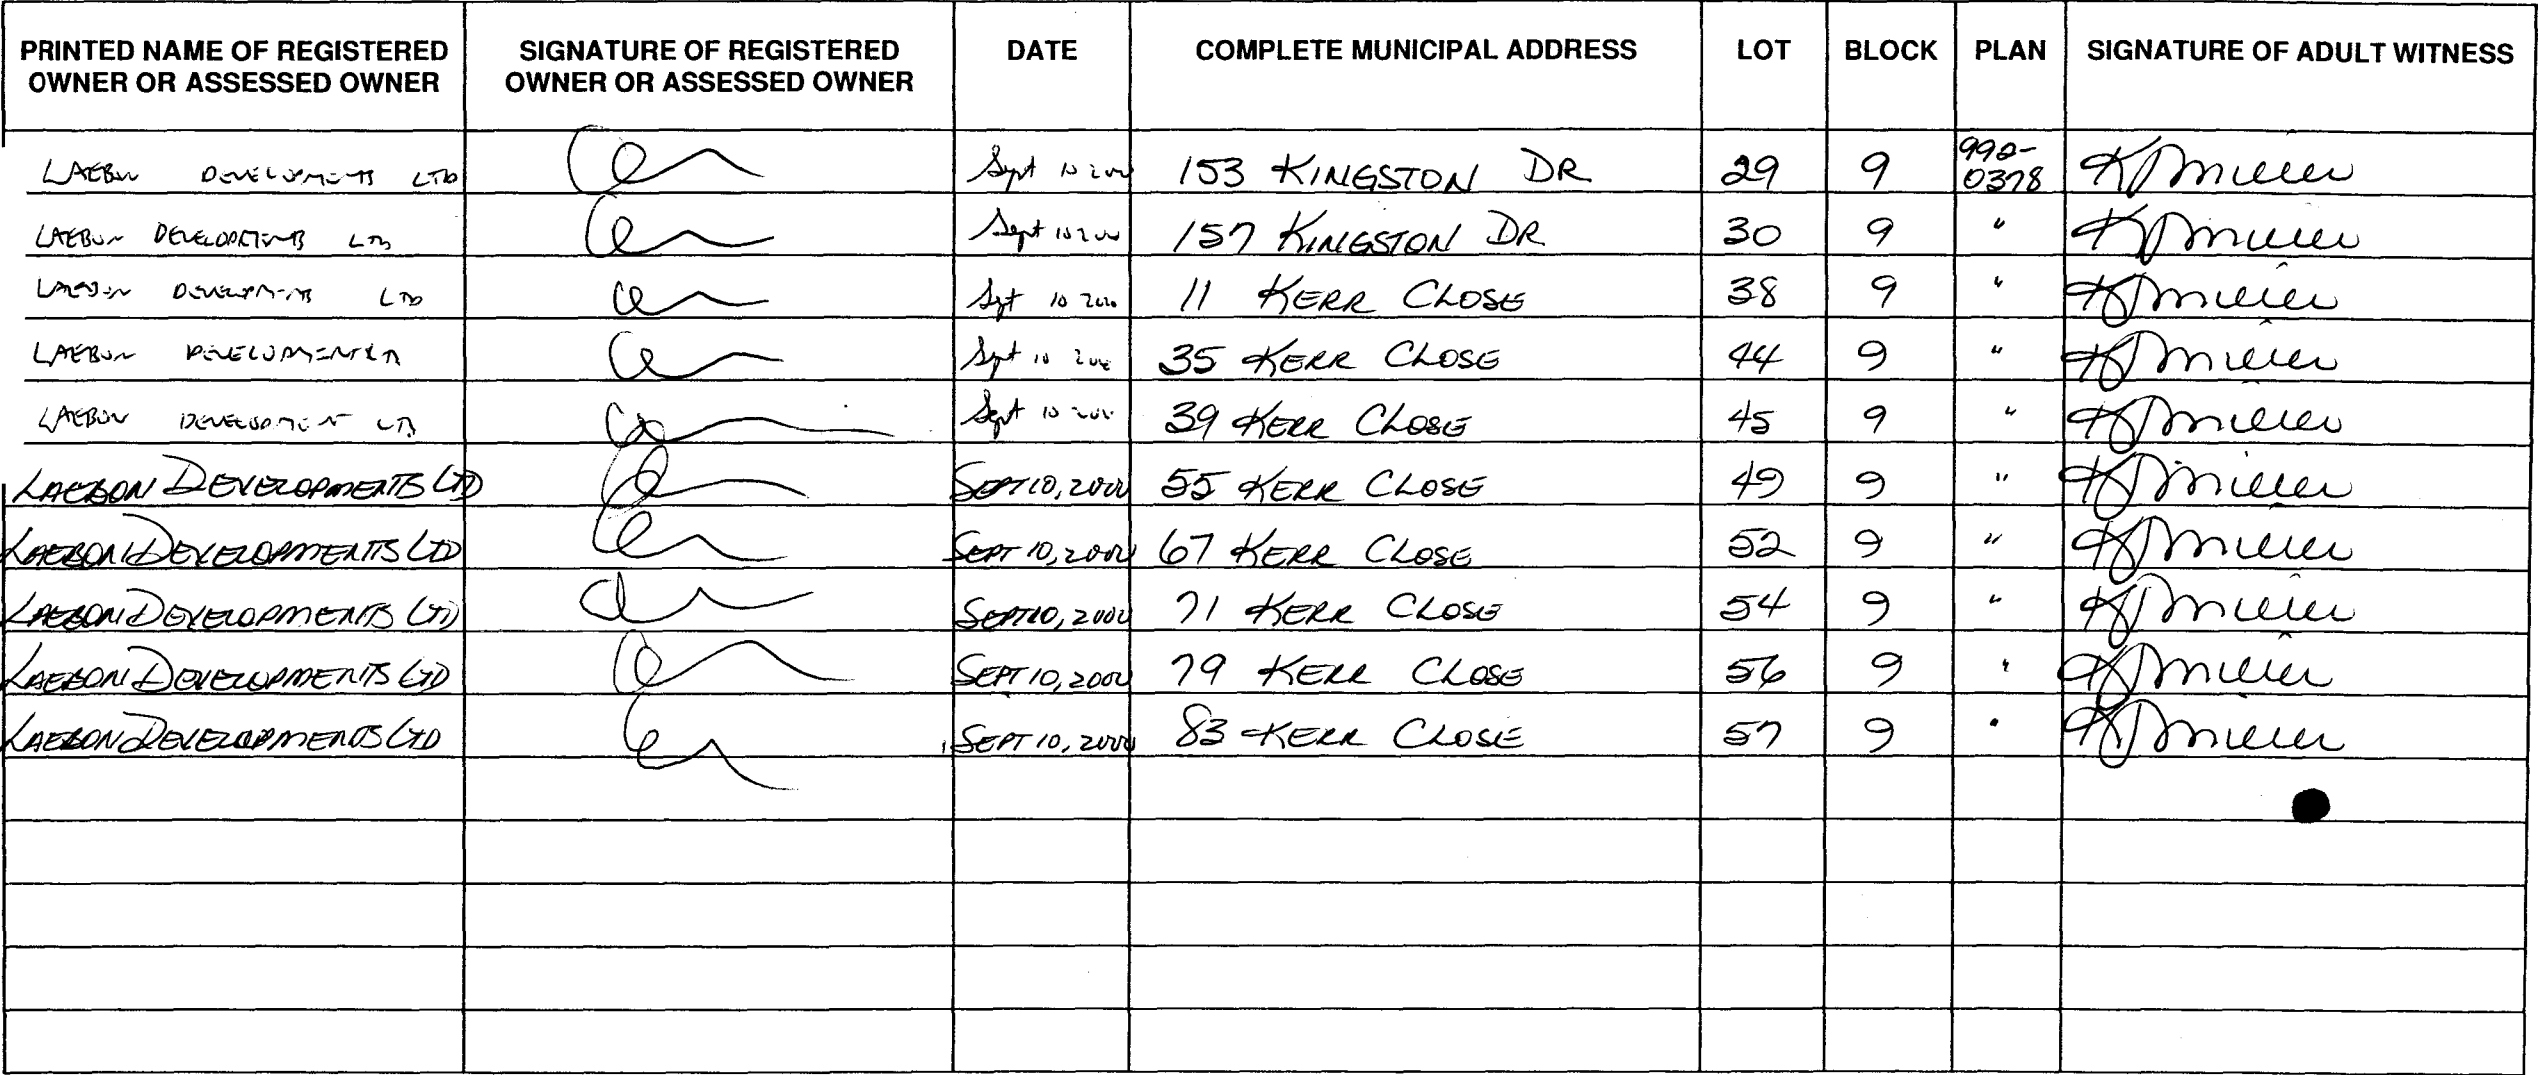 PRINTED NAME OF REGISTERED OWNER OR ASSESSED OWNER SIGNATURE OF REGISTERED OWNER OR ASSESSED OWNER DATE COMPLETE MUNICIPAL ADDRESS LOT BLOCK PLAN SIGNATURE OF ADULT WITNESS
LAEBON DEVELOPMENTS LTD Sept 10 2000 153 KINGSTON DR 29 9 992-0378 K Miller
LAEBON DEVELOPMENTS LTD Sept 10 2000 157 KINGSTON DR 30 9 " K Miller
LAEBON DEVELOPMENTS LTD Sept 10 2000 11 KERR CLOSE 38 9 " K Miller
LAEBON DEVELOPMENT LTD Sept 10 2000 35 KERR CLOSE 44 9 " K Miller
LAEBON DEVELOPMENT LTD Sept 10 2000 39 KERR CLOSE 45 9 " K Miller
LAEBON DEVELOPMENTS LTD SEPT 10, 2000 55 KERR CLOSE 49 9 " K Miller
LAEBON DEVELOPMENTS LTD SEPT 10, 2000 67 KERR CLOSE 52 9 " K Miller
LAEBON DEVELOPMENTS LTD SEPT 10, 2000 71 KERR CLOSE 54 9 " K Miller
LAEBON DEVELOPMENTS LTD SEPT 10, 2000 79 KERR CLOSE 56 9 " K Miller
LAEBON DEVELOPMENTS LTD SEPT 10, 2000 83 KERR CLOSE 57 9 " K Miller